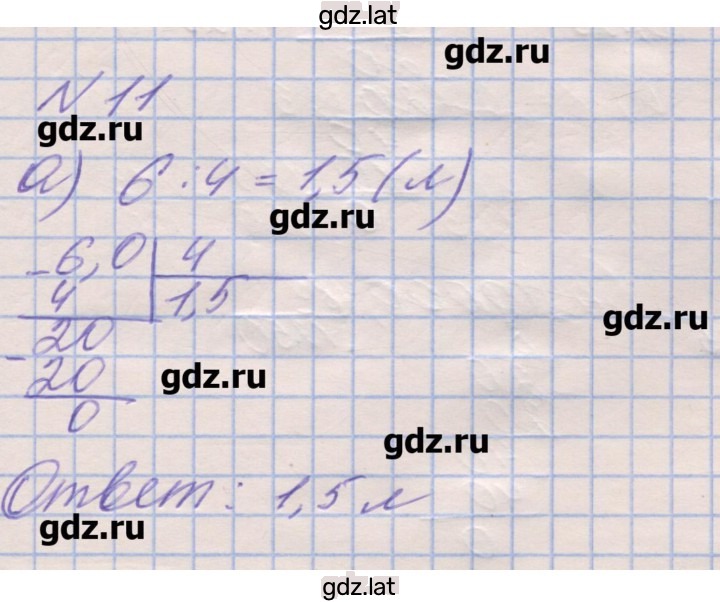 gdz.lat
gdz.ru
N 11
gdz.ru
а) 6 : 4 = 1,5 (л)
gdz.ru
- 6,0 | 4
4 | 1,5
gdz.ru
- 20
20
gdz.ru
0
gdz.ru
Ответ: 1,5 л
gdz.ru
gdz.lat